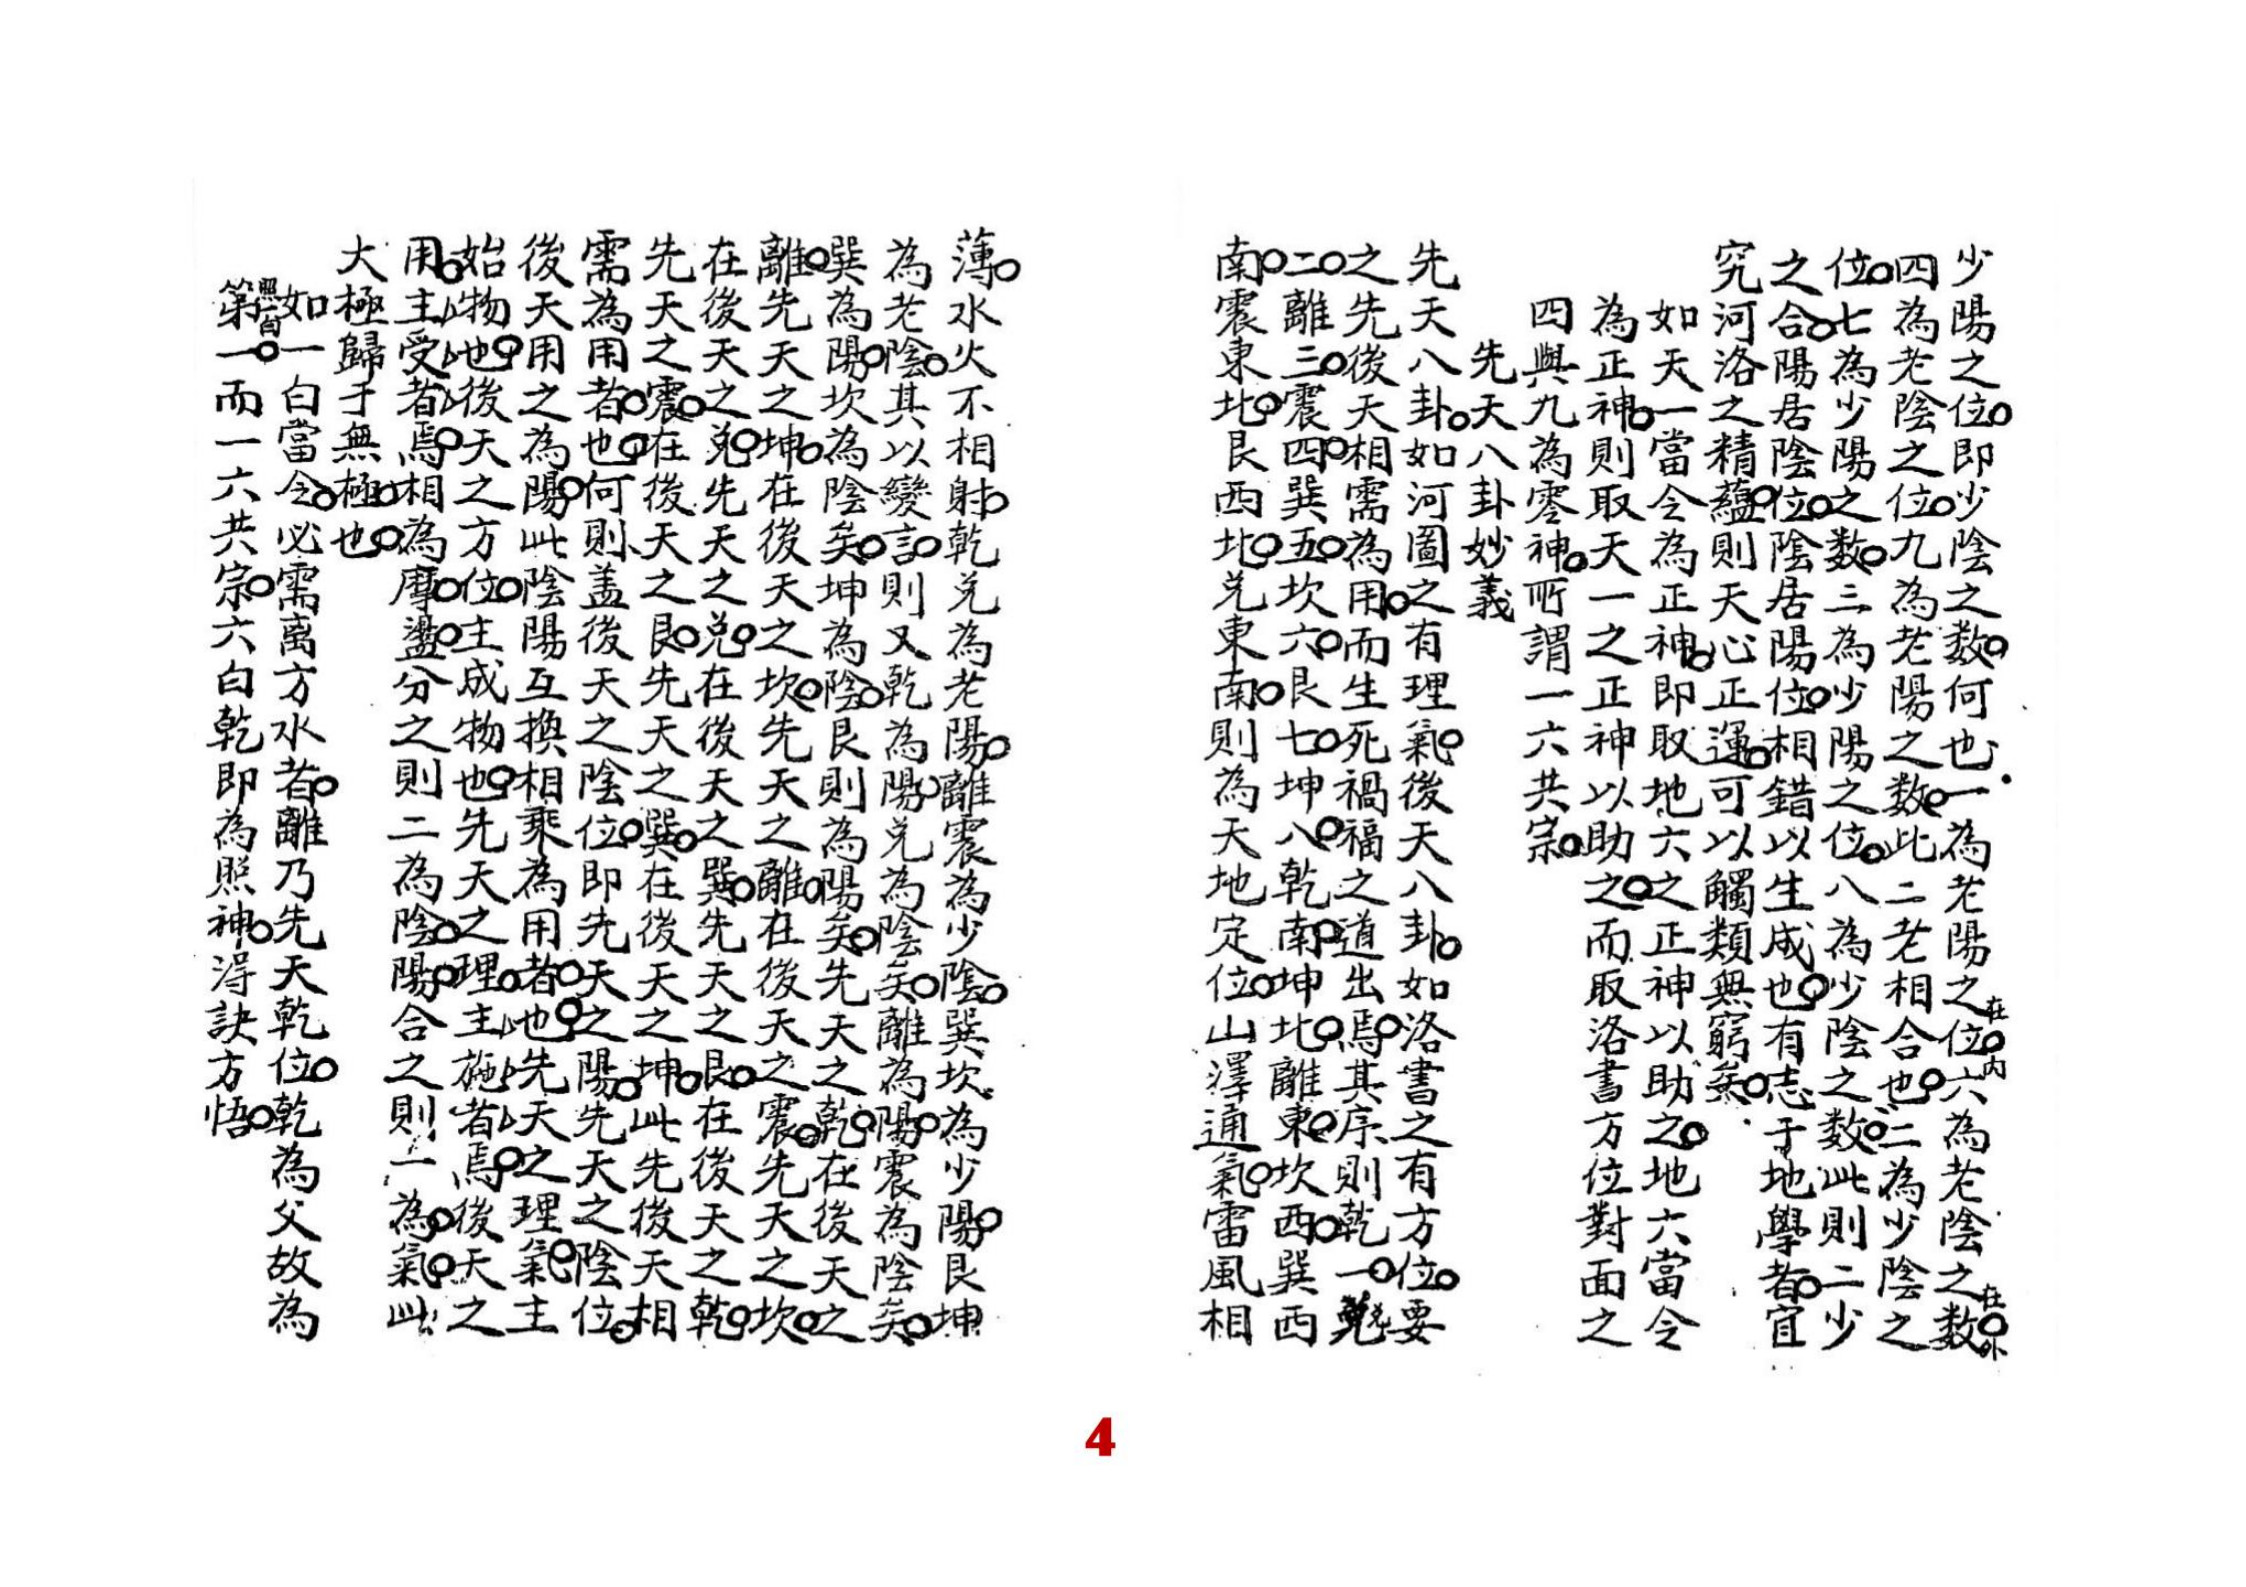 少陽之位。即少陰之数。何也。一為老陽之位在內。六為老陰之数在外。
四為老陰之位。九為老陽之数。此二老相合也。二為少陰之
位。七為少陽之数。三為少陽之位。八為少陰之数。此則二少
之合。陽居陰位。陰居陽位。相錯以生成也。有志于地學者。宜
究河洛之精蘊。則天心正運。可以觸類無窮矣。
如天一當令為正神。即取地六之正神以助之。地六當令
為正神。則取天一之正神以助之。而取洛書方位對面之
四與九為零神。所謂一六共宗。
先天八卦妙義
先天八卦。如河圖之有理氣。後天八卦。如洛書之有方位。要
之先後天相需為用。而生死禍福之道出焉。其序則乾一。兌
二。離三。震四。巽五。坎六。艮七。坤八。乾南。坤北。離東。坎西。巽西
南。震東北。艮西北。兌東南。則為天地定位。山澤通氣。雷風相
薄。水火不相射。乾兌為老陽。離震為少陰。巽坎為少陽。艮坤
為老陰。其以變言。則又乾為陽。兌為陰矣。離為陽。震為陰矣。
巽為陽。坎為陰矣。坤為陰。艮則為陽矣。先天之乾。在後天之
離。先天之坤。在後天之坎。先天之離。在後天之震。先天之坎。
在後天之兌。先天之兌。在後天之巽。先天之艮。在後天之乾。
先天之震。在後天之艮。先天之巽。在後天之坤。此先後天相
需為用者也。何則、盖後天之陰位。即先天之陽。先天之陰位。
後天用之為陽。此陰陽互換相乘為用者也。先天之理氣。主
始物也。後天之方位。主成物也。先天之理。主施者焉。後天之
用。主受者焉。相為摩盪。分之則二為陰陽。合之則一為氣。此
大極歸于無極也。
如一白當令。必需离方水者。離乃先天乾位。乾為父故為
照百。
第一而一六共宗。六白乾即為照神。淂訣方悟。